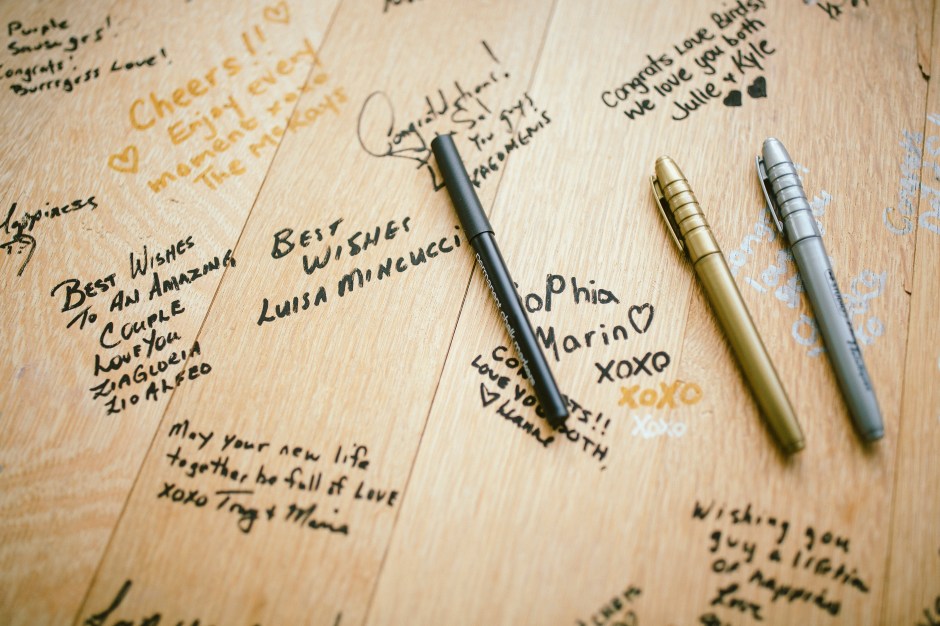 Purple
Sausages!
Congrats!
Burrrgess Love!
Cheers!!
Enjoy every
moment xoxo
The McKays
Congratulations!
You guys!
Congrats Love Birds!
We love you both
Julie + Kyle
Happiness
BEST WISHES
TO AN AMAZING
COUPLE
LOVE YOU
ZIA GLORIA
ZIO ALFEO
BEST
WISHES
LUISA MINCUCCI
permanent chalk marker
oPhia
Marin
XOXO
XOXO
XOXO
LOVE YOU BOTH
May your new life
together be full of LOVE
XOXO Tony + Maria
Wishing you
guy a lifetim
of happines
Love